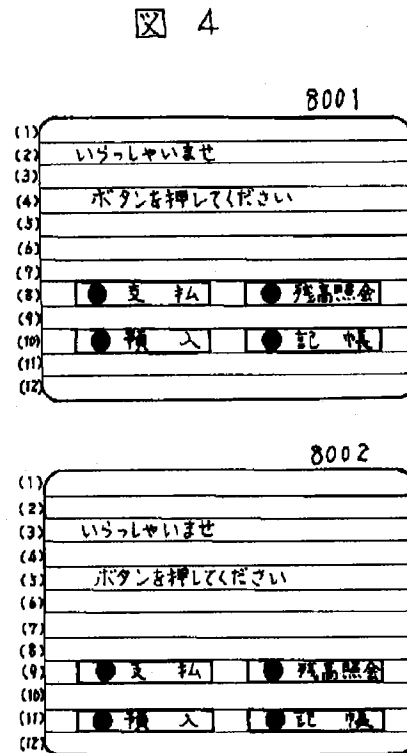 図 4
8001
(1)
(2) いらっしゃいませ
(3)
(4) ボタンを押してください
(5)
(6)
(7)
(8) ● 支 払 ● 残高照会
(9)
(10) ● 預 入 ● 記 帳
(11)
(12)
8002
(1)
(2)
(3) いらっしゃいませ
(4)
(5) ボタンを押してください
(6)
(7)
(8)
(9) ● 支 払 ● 残高照会
(10)
(11) ● 預 入 ● 記 帳
(12)